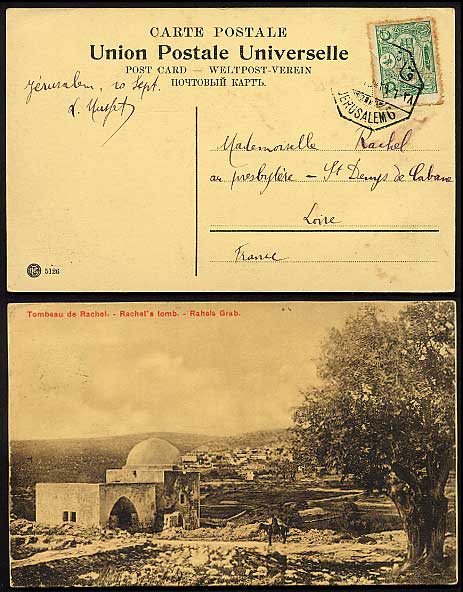 CARTE POSTALE
Union Postale Universelle
POST CARD — WELTPOST-VEREIN
ПОЧТОВЫЙ КАРТЪ.
Jérusalem, 20 Sept.
JERUSALEM 6
Mademoiselle Rachel
au presbytère – St Denys de Cabane
Loire
France
5126
Tombeau de Rachel. - Rachel's tomb. - Rahels Grab.